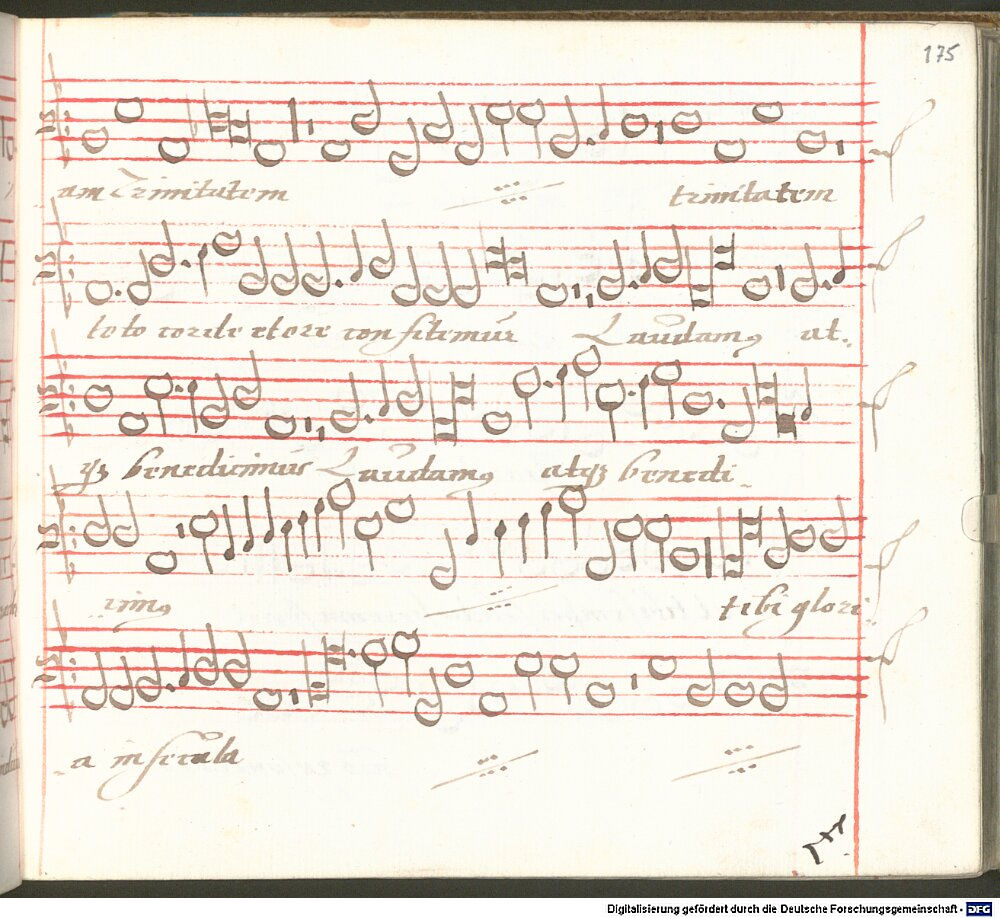 175
am Trinitatem trinitatem
toto corde et ore confitemur Laudamꝰ at-
qꝫ benedicimus Laudamꝰ atqꝫ benedi-
cimꝰ tibi glori
a in secula
Digitalisierung gefördert durch die Deutsche Forschungsgemeinschaft - DFG